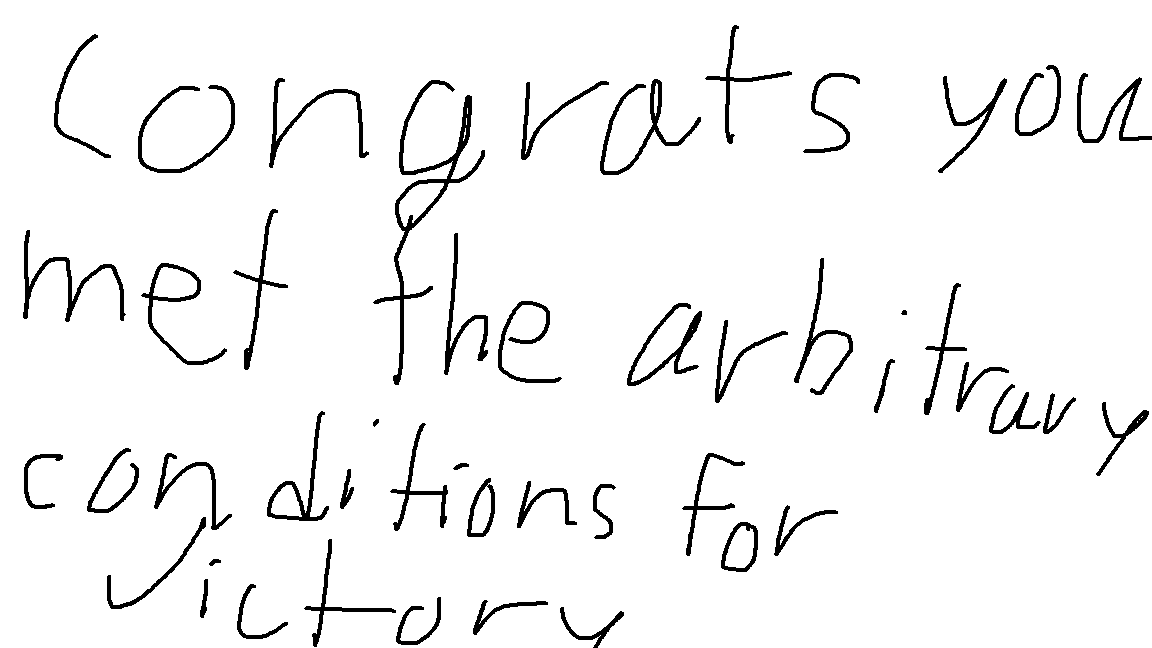 Congrats you
met the arbitrary
conditions for
victory